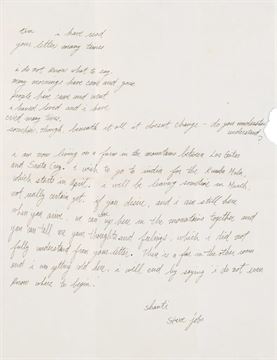 tim i have read
your letter many times
i do not know what to say.
many mornings have come and gone
people have came and went
i have loved and i have
cried many times.
somehow, though, beneath it all it doesn't change - do you understand
understand?
i am now living on a farm in the mountains between Los Gatos
and Santa Cruz. i wish to go to india for the Kumba Mela,
which starts in April. i will be leaving sometime in March,
not really certain yet. if you desire, and i am still here
when you arrive we can be up here in the mountains together and
you can tell me your thoughts and feelings, which i did not
fully understand from your letter. There is a fire in the other room
and i am getting cold here. i will end by saying i do not even
know where to begin.
shanti
steve jobs